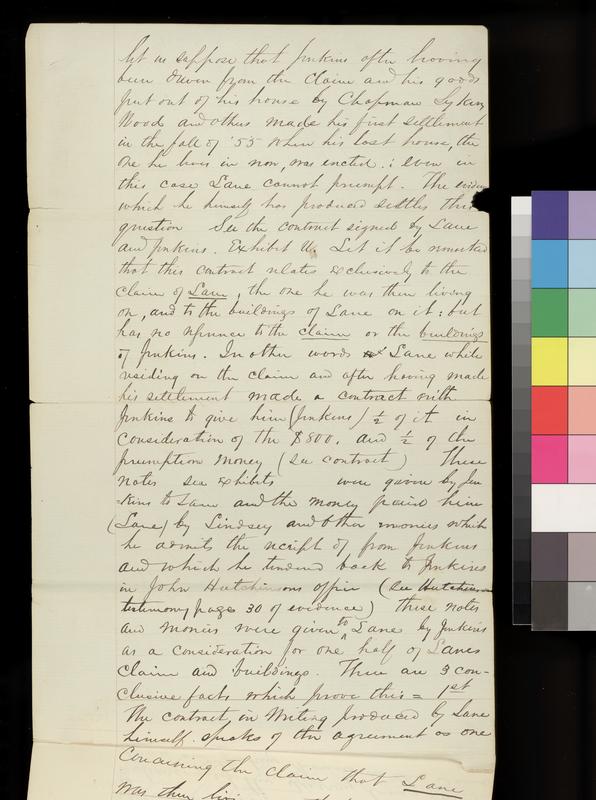 let us suppose that Jenkins after having
been driven from the claim and his goods
put out of his house by Chapman Sykes,
Wood and others made his first settlement
in the fall of '55 when his last house, the
one he lives in now, was erected. : even in
this case Lane cannot preempt. The eviden
which he himself has produced settles this
question See the contract signed by Lane
and Jenkins. Exhibit Let it be remembered
that this contract relates exclusively to the
claim of Lane, the one he was then living
on, and to the buildings of Lane on it: but
has no reference to the claim or the buildings
of Jenkins. In other words Lane while
residing on the claim and after having made
his settlement made a contract with
Jenkins to give him (Jenkins) 1/2 of it in
consideration of the $800. and 1/2 of the
preemption money (see contract) These
notes see exhibits were given by Jen
-kins to Lane and the money paid him
(Lane) by Lindsey and other monies which
he admits the receipt of from Jenkins
and which he tendered back to Jenkins
in John Hutchinsons office (see Hutchinsons
testimony page 30 of evidence) these notes
and monies were given to Lane by Jenkins
as a consideration for one half of Lanes
claim and buildings. There are 3 con-
clusive facts which prove this = 1st
The contract in Writing produced by Lane
himself. speaks of the agreement as one
concerning the claim that Lane
was then